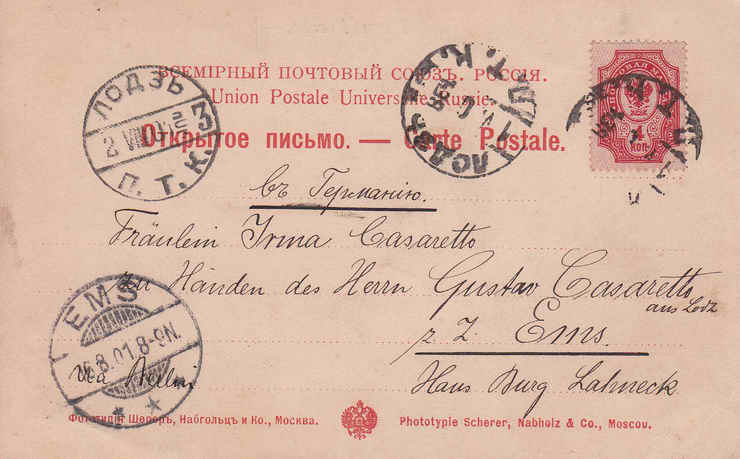 ВСЕМІРНЫЙ ПОЧТОВЫЙ СОЮЗЪ. РОССІЯ.
Union Postale Universelle. Russie.
Открытое письмо. — Carte Postale.
ЛОДЗЬ
2 VIII
П. Т. К.
4
КОП.
въ Германию.
Fräulein Irma Casaretto
zu Händen des Herrn Gustav Casaretto
aus Lodz
z Z. Ems.
Haus Burg Lahneck
EMS
8.01.8-9N.
Via Berlin
Фототипія Шереръ, Набгольцъ и Ко., Москва.
Phototypie Scherer, Nabholz & Co., Moscou.